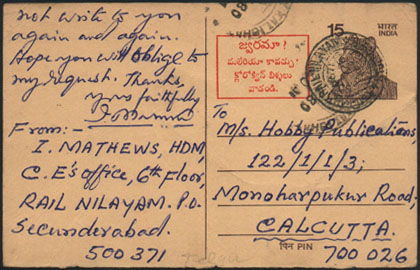 not write to you
again and again.
Hope you will oblige to
my request. Thanks,
yours faithfully
From:-
I. MATHEWS, HDM,
C.E's office, 6th Floor,
RAIL NILAYAM. P.O.
Secunderabad.
500 371
15
భారత INDIA
జ్వరమా!
మలేరియా కావచ్చు
క్లోరోక్విన్ బిళ్ళలు
వాడండి.
To
M/s. Hobby Publications,
122/1/1/3;
Monoharpukur Road.
CALCUTTA.
पिन PIN
700 026